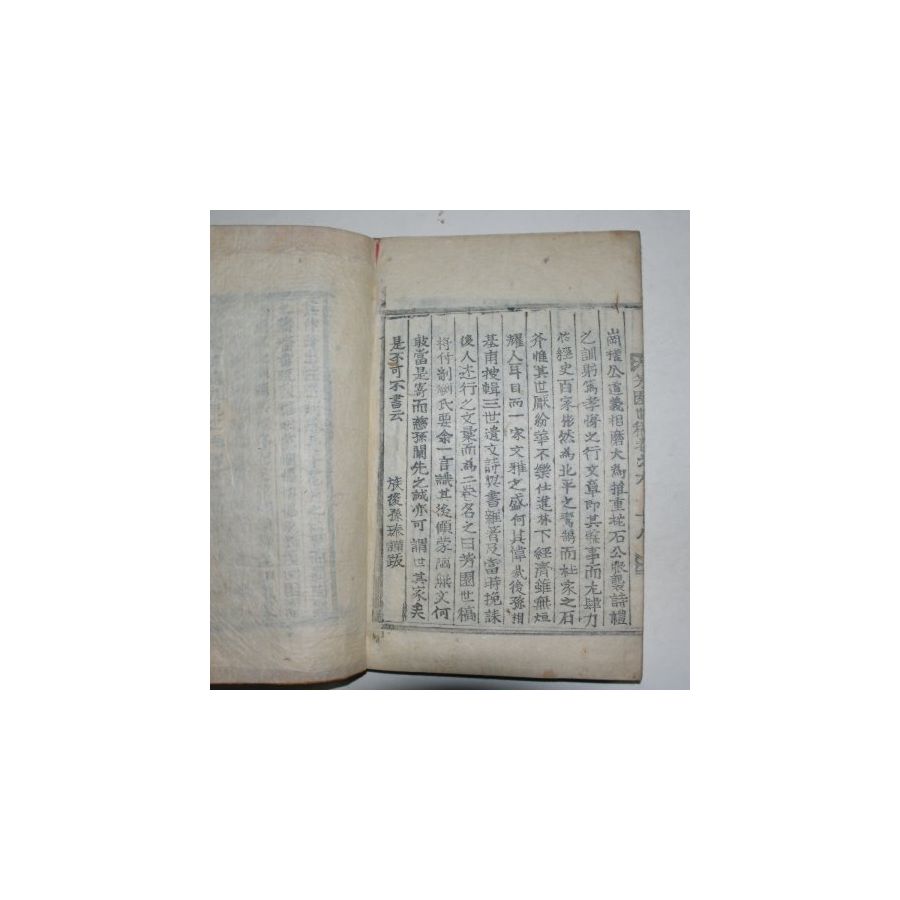 芳園世稿
尚稽公道義相磨大為推重桂石公承襲詩禮
之訓躬篤孝悌之行文章即其餘事而尤肆力
於經史百家依然為北平之鸞鵠而杜家之石
斧惟其世厭紛華不樂仕進林下經濟雖無烜
耀人耳目而一家文雅之盛何其偉哉後孫相
基甫搜輯三世遺文詩與書雜著及當時挽誄
後人述行之文彙而為二卷名之曰芳園世稿
將付剞劂氏要余一言識其後顧蒙陋無文何
敢當是寄而慈孫闡先之誠亦可謂世其家矣
是不可不書云
族後孫 謹跋